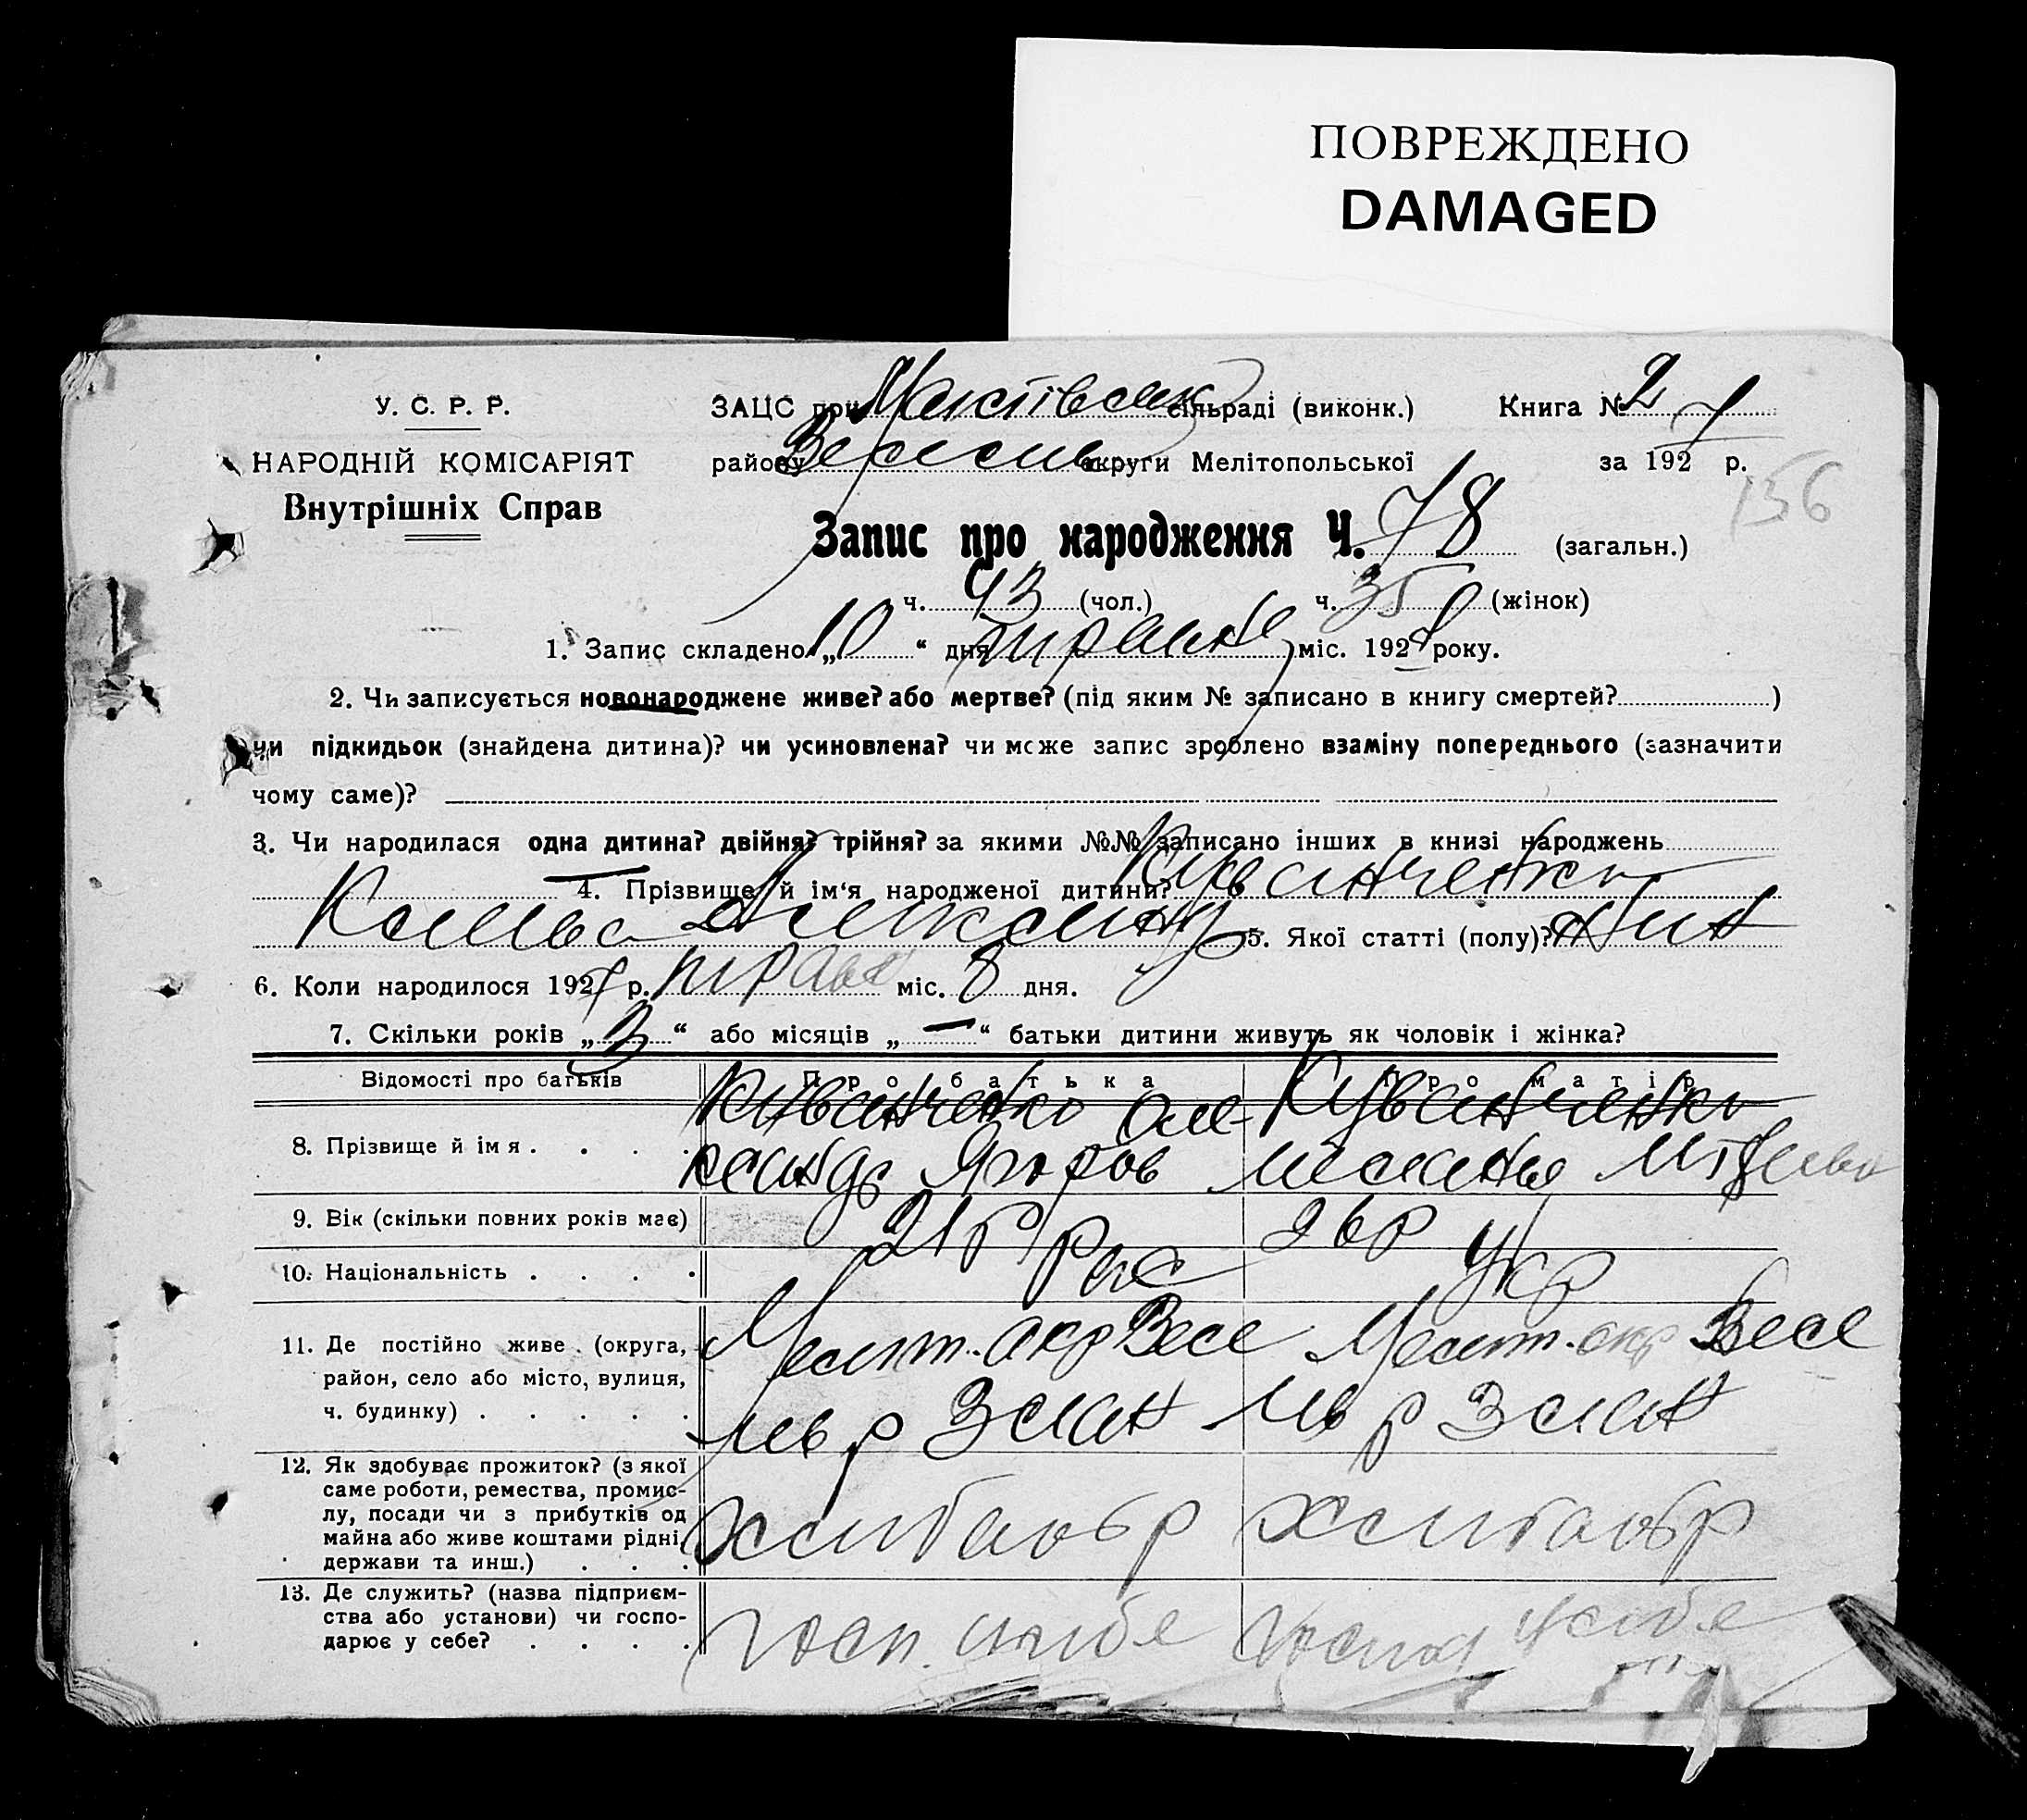 ПОВРЕЖДЕНО
DAMAGED
У. С. Р. Р.
ЗАЦС при сільраді (виконк.) Книга № 2
НАРОДНІЙ КОМІСАРІЯТ
району округи Мелітопольської за 192 р.
156
Внутрішніх Справ
Запис про народження Ч. 78 (загальн.)
ч. 43 (чол.) ч. 35 (жінок)
1. Запис складено „10“ дня травня міс. 192 року.
2. Чи записується новонароджене живе? або мертве? (під яким № записано в книгу смертей? )
чи підкидьок (знайдена дитина)? чи усиновлена? чи може запис зроблено взаміну попереднього (зазначити
чому саме)?
3. Чи народилася одна дитина? двійня? трійня? за якими №№ записано інших в книзі народжень
4. Прізвище й ім‘я народженої дитини? Куванченко
5. Якої статті (полу)?
6. Коли народилося 192 р. трав міс. 8 дня.
7. Скільки років „3“ або місяців „—“ батьки дитини живуть як чоловік і жінка?
Відомості про батьків Про батька Про матір
8. Прізвище й ім я . . . . Куванченко Оле- Куванченко
ксандр Ягоров
9. Вік (скільки повних років має) 21 р 26 р
10. Національність . . . . Рос Укр
11. Де постійно живе (округа, Мелит. окр Весе Мелит. окр Весе
район, село або місто, вулиця,
ч. будинку) . . . . .
12. Як здобуває прожиток? (з якої
саме роботи, ремества, промис-
лу, посади чи з прибутків од
майна або живе коштами рідні,
держави та инш.) . . . хлібороб хлібороб
13. Де служить? (назва підприєм-
ства або установи) чи госпо-
дарює у себе? . . . .